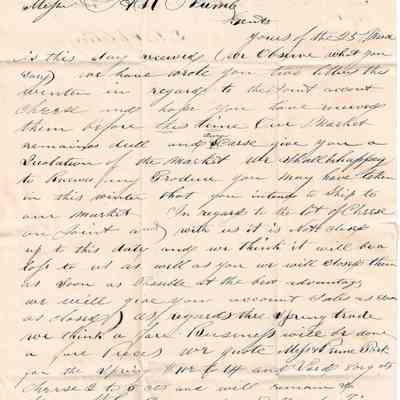 Messr
Gents
Yours of the 25 
is this day received (We Observe what you
Say) we have wrote you two letters this
winter in regard to the Joint account
Cheese and hope you have received
them before this time Our Market
remains dull and give you a
Quotation of the Market We Shall be happy
to Receive any Produce you may have taken
in this winter that you intend to Ship to
our market In regard to the lot of Cheese
on Joint a/c with us it is Not closed
up to this date and we think it will be a
loss to us as well as you we will close them
as Soon as Possible at the best advantage
we will give you account Sales as soon
as closed) as regards the Spring trade
we think a fare Business will be done
a fare Prices we quote Mess &amp; Prime Pork
for the Spring to 14 and Lard
Cheese 2 to and will remain